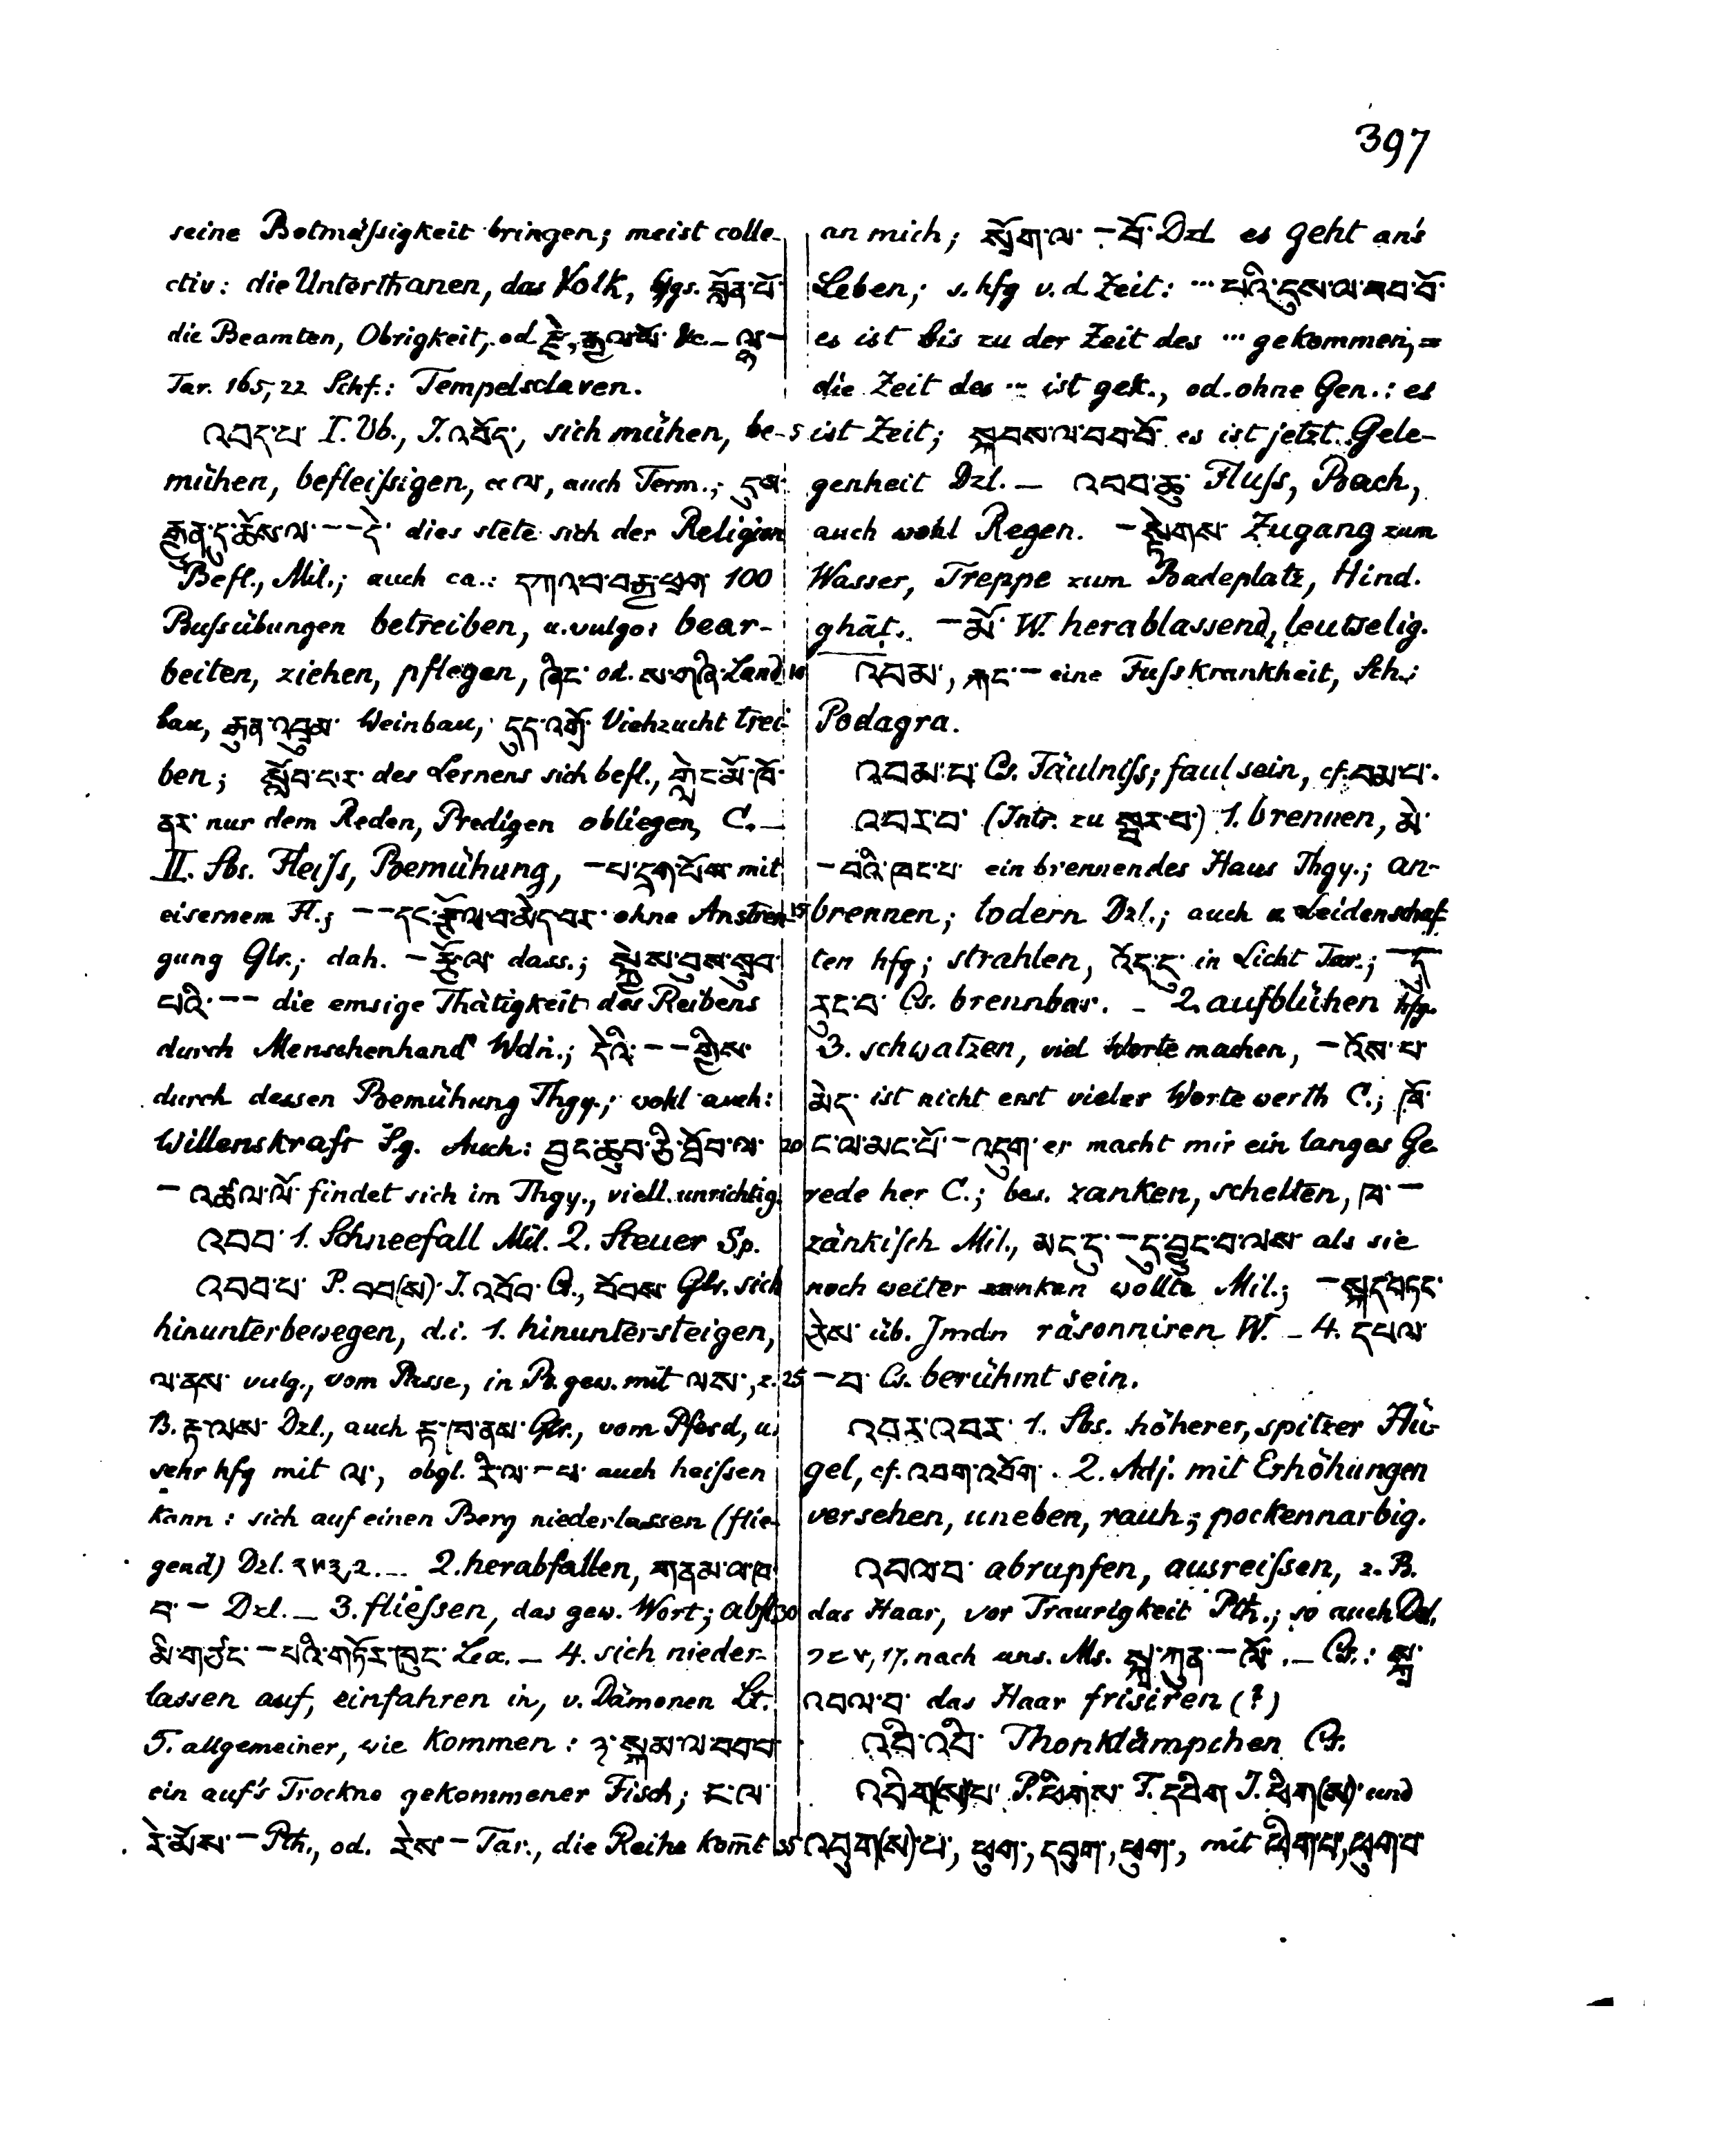 397
seine Botmäſsigkeit bringen; meist colle-
ctiv: die Unterthanen, das Volk, Ggs. བློན་པོ་
die Beamten, Obrigkeit, od. རྗེ་, རྒྱལ་པོ་ &c. _ ལྷ་ —
Tar. 165, 22 Schf.: Tempelsclaven.
འབད་པ་ I. Vb., J. འབོད་, sich mühen, be- 5
mühen, befleiſsigen, c. ལ་, auch Term.; དུས་
རྒྱུན་དུ་ཆོས་ལ་ — — དེ་ dies stete sich der Religion
Befl., Mil.; auch ca.: དཀའ་བ་བརྒྱ་ཕྲག་ 100
Buſsübungen betreiben, u. vulgo: bear-
beiten, ziehen, pflegen, ཞིང་ od. ས་གཞི་ Land 10
bau, རྒུན་འབྲུམ་ Weinbau, དུད་འགྲོ་ Viehzucht trei-
ben; སློབ་པ་ར་ des Lernens sich befl., གླེང་མོ་ཁོ་
ནར་ nur dem Reden, Predigen obliegen, C. _
II. Sbs. Fleiſs, Bemühung, — པ་དྲག་པོས་ mit
eisernem Fl.; — — དང་རྩོལ་བ་མེད་པར་ ohne Anstren- 15
gung Glr.; dah. — རྩོལ་ dass.; སྐྱེས་བུས་སྲུབ་
པའི་ — — die emsige Thätigkeit des Reibens
durch Menschenhand Wdn.; དེའི་ — — གྱིས་
durch dessen Bemühung Thgy.; wohl auch:
Willenskraft S.g. Auch: བྱང་ཆུབ་ཅི་ཐོབ་ལ་ 20
— འཚལ་ལོ་ findet sich im Thgy., viell. unrichtig.
འབབ་ 1. Schneefall Mil. 2. Steuer Sp.
འབབ་པ་ P. བབ(ས)་ J. འབོབ་ Cs., བོབས་ Glr. sich
hinunterbewegen, d. i. 1. hinuntersteigen,
ལ་ནས་ vulg., vom Passe, in B. gew. mit ལས་, z. 25
B. རྟ་ལས་ Dzl., auch རྟ་ཁ་ནས་ Glr., vom Pferd, u.
sehr hfg mit ལ་, obgl. རི་ལ་ — པ་ auch heiſsen
kann: sich auf einen Berg niederlassen (flie-
gend) Dzl. २५२, 2. _ 2. herabfallen, གནམ་ལ་ཁ་
བ་ — Dzl. _ 3. flieſsen, das gew. Wort; abfl. 30
མི་གཙང་ — པའི་གཏོར་ཁུང་ Lex. _ 4. sich nieder-
lassen auf, einfahren in, v. Dämonen Lt.
5. allgemeiner, wie kommen: ཉ་སྐམ་ལ་བབབ་
ein auf's Trockne gekommener Fisch; ང་ལ་
རེ་མོས་ — Pth., od. རེས་ — Tar., die Reihe kom̄t 35
an mich; སྲོག་ལ་ — བོ་ Dzl. es geht an's
Leben; s. hfg v. d. Zeit: ... པའི་དུས་ལ་བབ་བོ་
es ist bis zu der Zeit des ... gekommen, =
die Zeit des ... ist gek., od. ohne Gen.: es
ist Zeit; སྐབས་ལ་བབ་བོ་ es ist jetzt Gele-
genheit Dzl. _ འབབ་ཆུ་ Fluſs, Bach,
auch wohl Regen. — སྟེགས་ Zugang zum
Wasser, Treppe zum Badeplatz, Hind.
ghāṭ. — མོ་ W. herablassend, leutselig.
འབམ་, རྐང་ — eine Fuſskrankheit, Sch.:
Podagra.
འབམ་པ་ Cs. Fäulniſs; faul sein, cf. བམ་པ་.
འབར་བ་ (Intr. zu སྦར་བ་) 1. brennen, མེ་
— བའི་ཁང་པ་ ein brennendes Haus Thgy.; an-
brennen; lodern Dzl.; auch v. Leidenschaf-
ten hfg; strahlen, འོད་དུ་ in Licht Tar.; — དུ་
རུང་བ་ Cs. brennbar. _ 2. aufblühen hfg.
3. schwatzen, viel Worte machen, — འོས་པ་
མེད་ ist nicht erst vieler Worte werth C.; ཁོ་
ང་ལ་མང་པོ་ — འདུག་ er macht mir ein langes Ge
rede her C.; bes. zanken, schelten, ཁ་ —
zänkiſch Mil., མང་དུ་ — དུ་བྱུང་བ་ལས་ als sie
noch weiter zanken wollte Mil.; — སྐད་བཏང་
རེས་ üb. Jmdn räsonniren W. _ 4. དཔལ་
— བ་ Cs. berühmt sein.
འབར་འབར་ 1. Sbs. höherer, spitzer Hü-
gel, cf. འབག་འབོག་. 2. Adj. mit Erhöhungen
versehen, uneben, rauh; pockennarbig.
འབལ་བ་ abrupfen, ausreiſsen, z. B.
das Haar, vor Traurigkeit Pth.; so auch Dzl.
17. nach uns. Ms. སྐྲ་ཀུན་ — ལོ་. _ Cs.: སྐྲ་
འབལ་བ་ das Haar frisiren (?)
འབི་འབི་ Thonklümpchen Cs.
འབིག(ས)་པ་ P. ཕིགས་ F. དབིག J. ཕིག(ས)་ und
འབུག(ས)་པ་, ཕུག་, དབུག་, ཕུག་, mit ཕིག་པ་, ཕུག་པ་